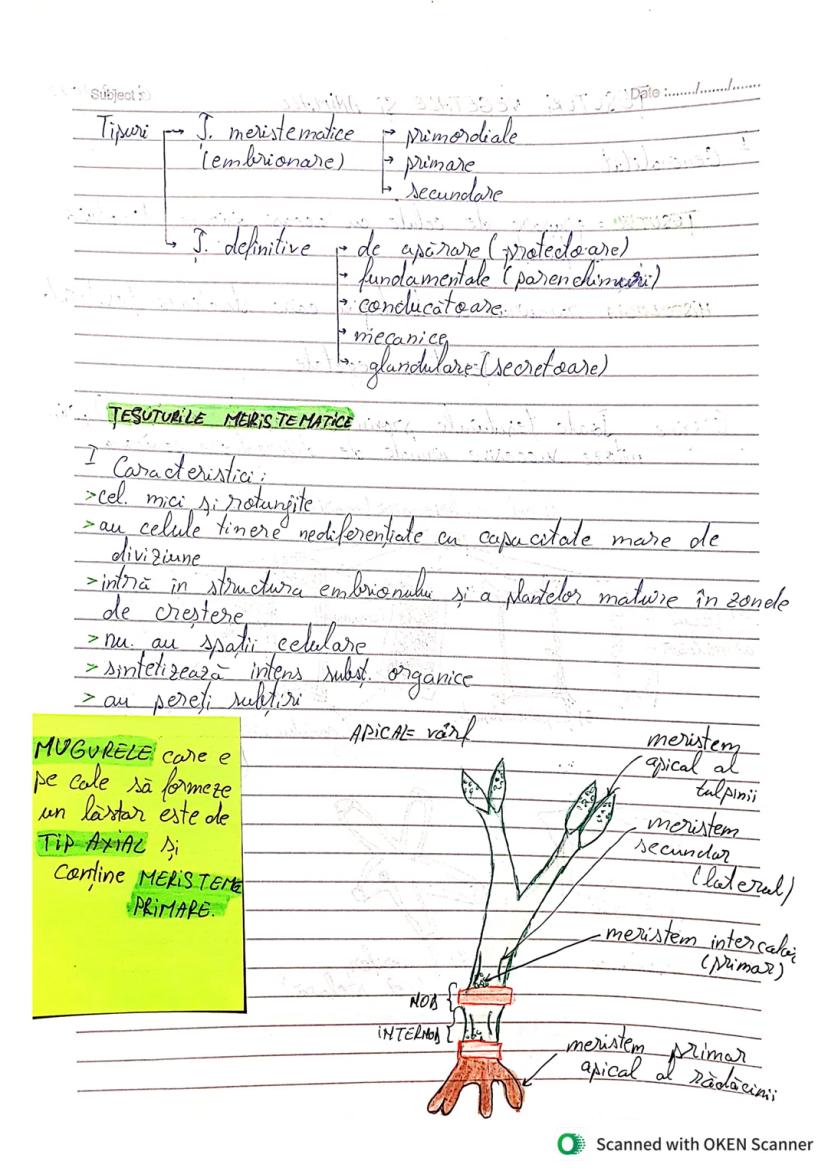 Subject :
Date :......./......./.......
Tipuri → Ț. meristematice → primordiale
(embrionare) → primare
→ secundare
→ Ț. definitive → de apărare (protectoare)
→ fundamentale (parenchimuri)
→ conducătoare
→ mecanice
→ glandulare (secretoare)
ȚESUTURILE MERISTEMATICE
I Caracteristici :
> cel. mici și rotunjite
> au celule tinere nediferențiate cu capacitate mare de
diviziune
> intră în structura embrionului și a plantelor mature în zonele
de creștere
> nu au spații celulare
> sintetizează intens subst. organice
> au pereți subțiri
MUGURELE care e
pe cale să formeze
un lăstar este de
TIP AXIAL și
conține MERISTEME
PRIMARE.
APICAL = vârf
meristem
apical al
tulpinii
meristem
secundar
(lateral)
meristem intercalar
(primar)
NOD
INTERNOD
meristem primar
apical al rădăcinii
Scanned with OKEN Scanner